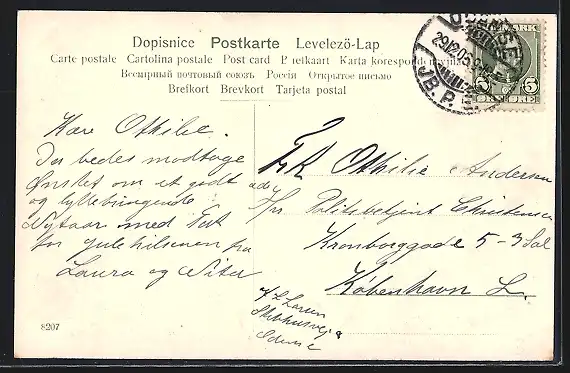 Dopisnice Postkarte Levelező-Lap
Carte postale Cartolina postale Post card Briefkaart Karta korespondencyjna
Всемірный почтовый союзъ Россія Открытое письмо
Brefkort Brevkort Tarjeta postal
ODENSE
29.12.05
JB.P.
DANMARK
5 5
Kære Othilie.
Du bedes modtage
Ønsket om et godt
og lykkebringende
Nytaar med Tak
for julehilsenen fra
Laura og Vita
Frk Othilie Andersen
adr
Hr Politibetjent Christensen
Kronborggade 5-3 Sal
København L.
Larsen
Skibhusvej
Odense
8207